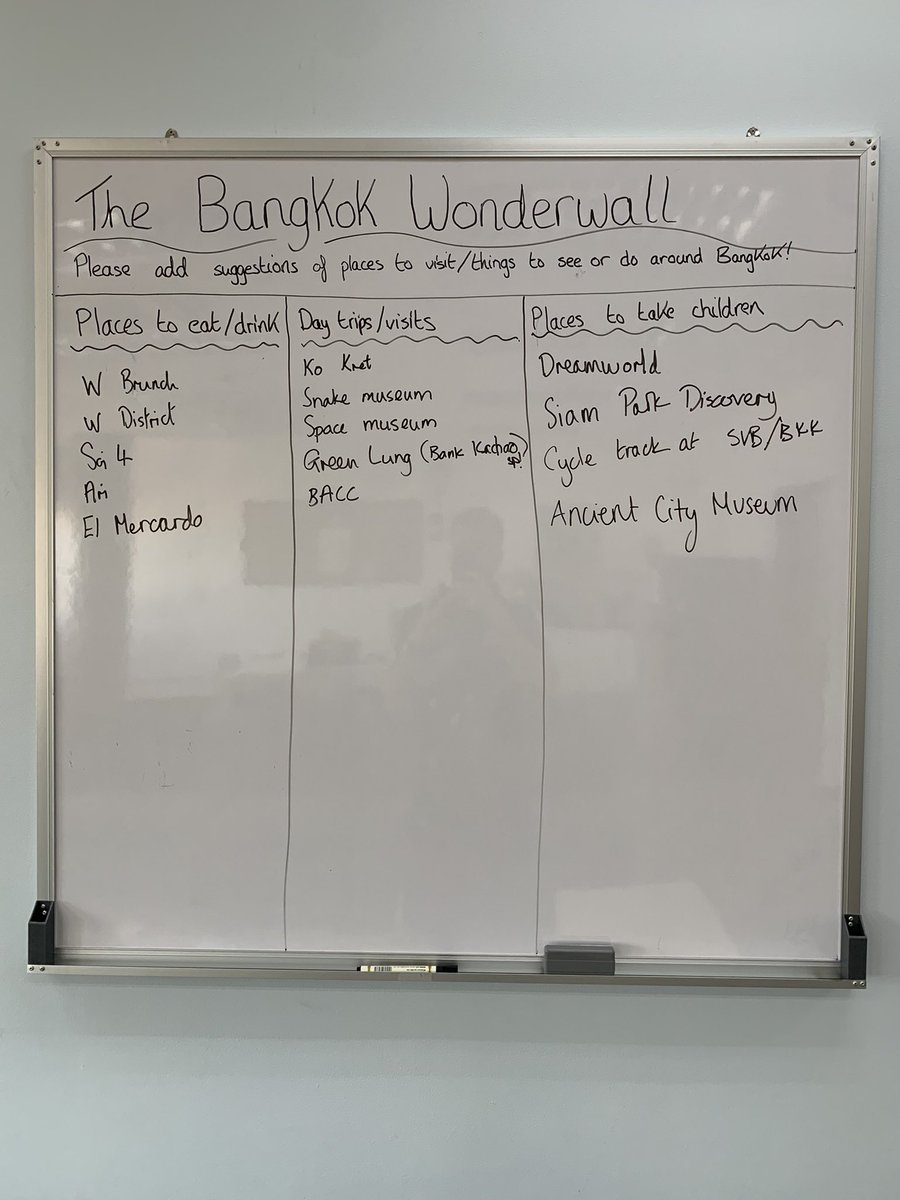 The Bangkok Wonderwall
Please add suggestions of places to visit/things to see or do around Bangkok!
Places to eat/drink
W Brunch
W District
Soi 4
Ari
El Mercardo
Day trips/visits
Ko Kret
Snake museum
Space museum
Green Lung (Bank Krachao)
sp?
BACC
Places to take children
Dreamworld
Siam Park Discovery
Cycle track at SVB/BKK
Ancient City Museum